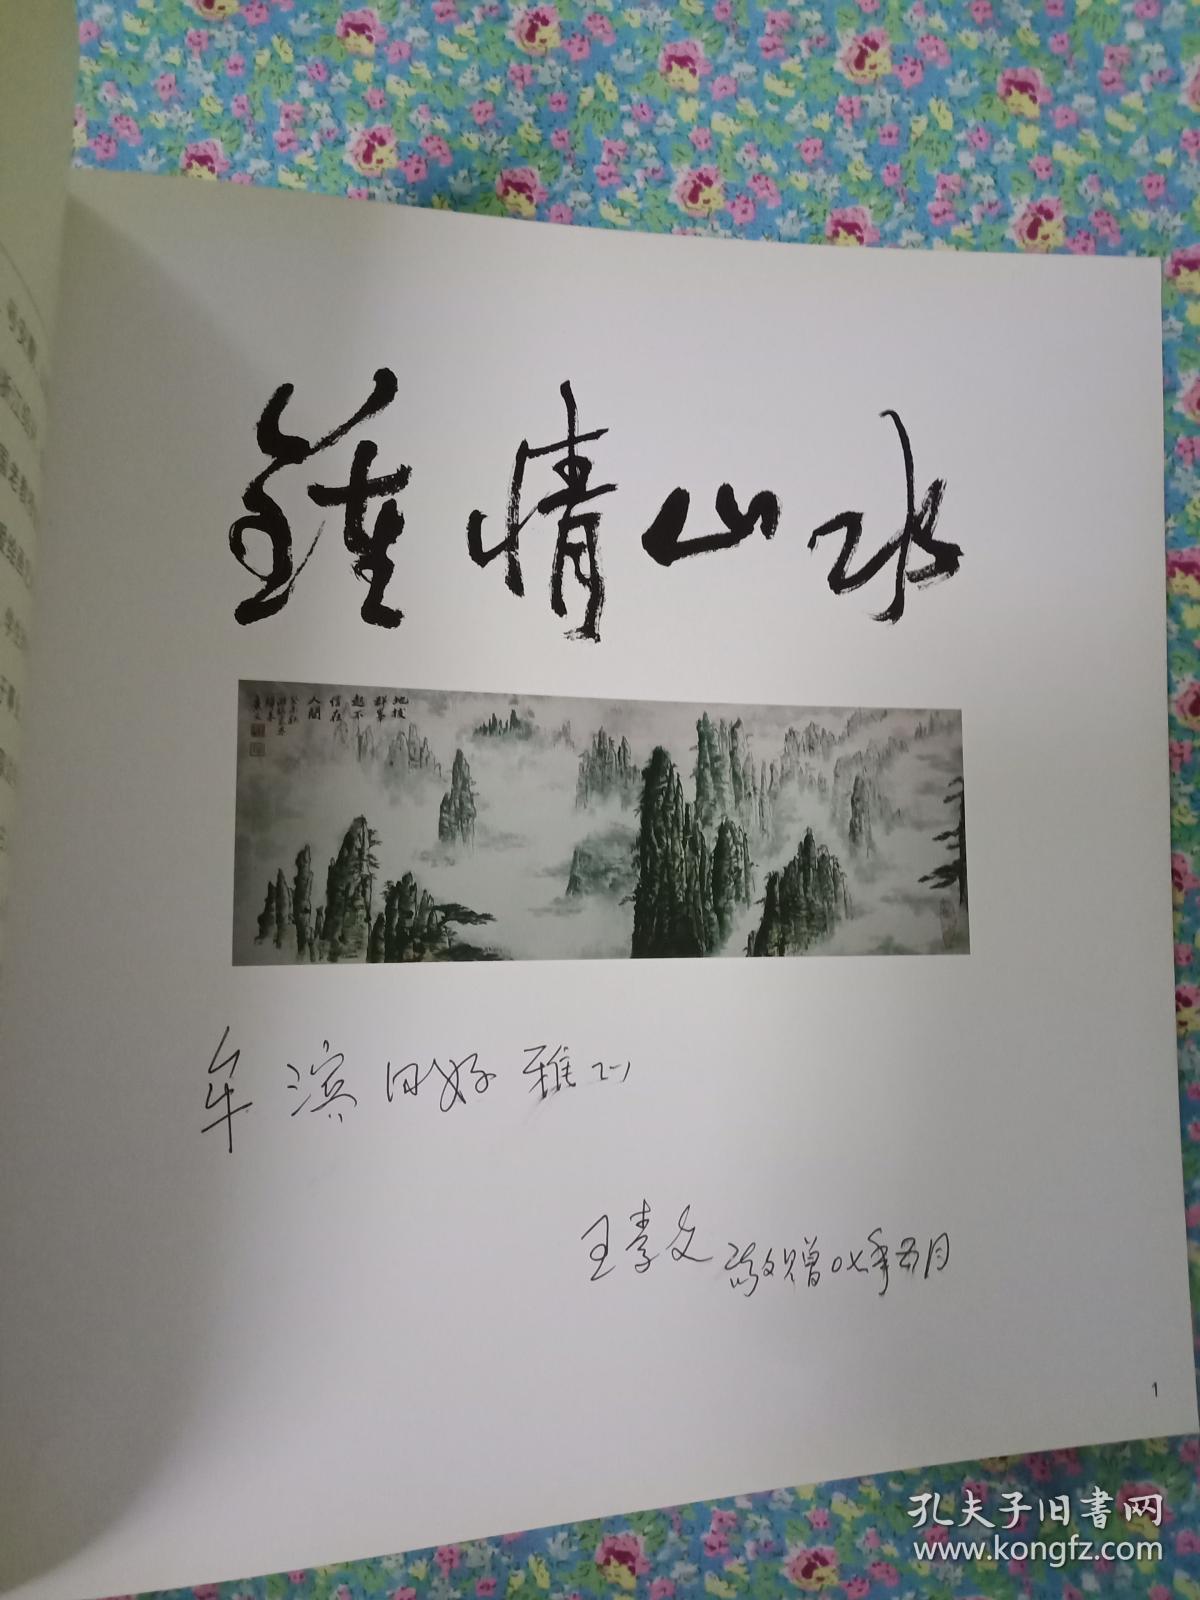 鍾情山水
地拔
群峯
起不
信在
人間
牟滨同好雅正
王素文敬赠〇七年五月
1
孔夫子旧书网
www.kongfz.com